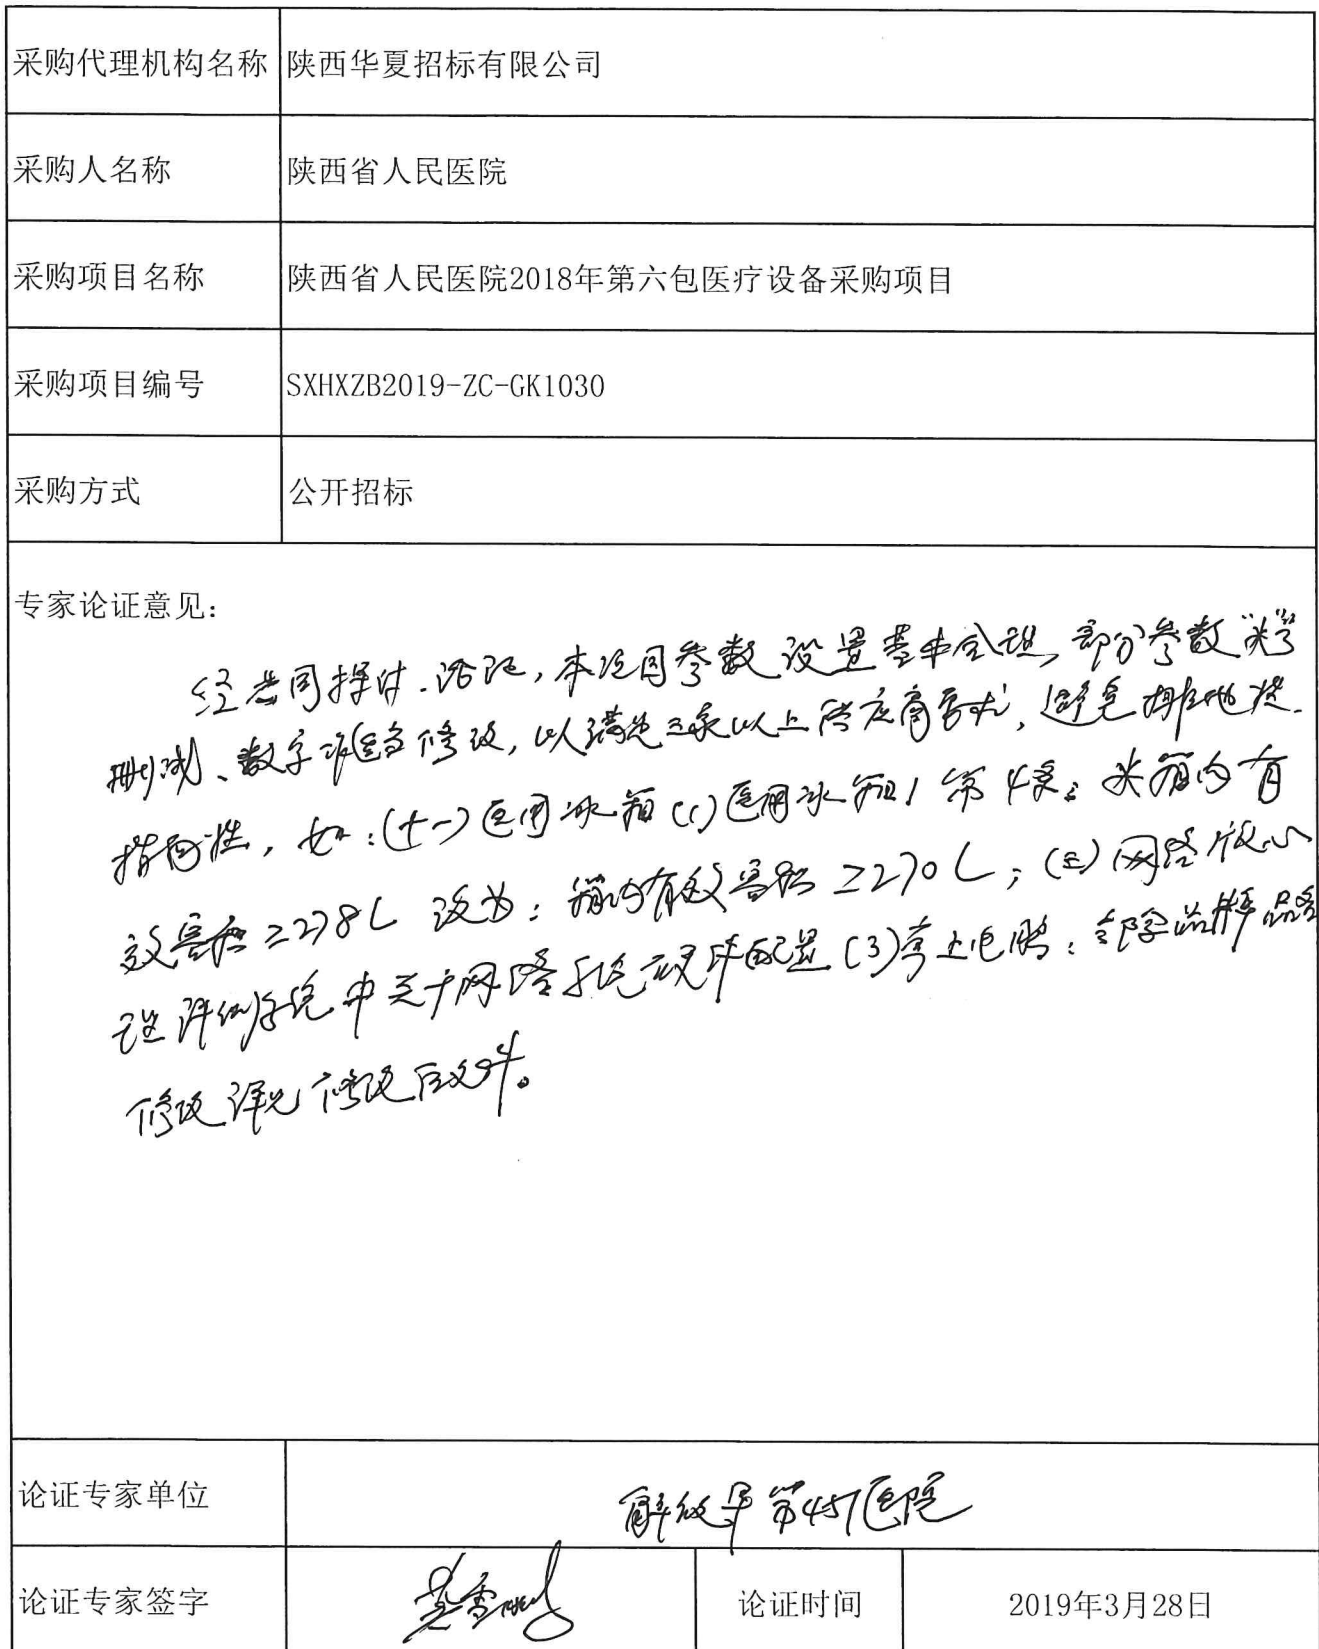 采购代理机构名称 陕西华夏招标有限公司
采购人名称 陕西省人民医院
采购项目名称 陕西省人民医院2018年第六包医疗设备采购项目
采购项目编号 SXHXZB2019-ZC-GK1030
采购方式 公开招标
专家论证意见：
经共同探讨、论证，本项目参数设置基本合理，部分参数
删减、数字适当修改，以满足三家以上供应商要求，避免排他性、
指向性，如：(十一)医用冰箱(1)医用冰箱1 第4条：箱内有
效容积≥278L 改为：箱内有效容积≥270L；(五)网络版心
理评测系统中关于网络系统硬件配置(3)掌上电脑：
修改详见修改后文件。
论证专家单位 解放军第451医院
论证专家签字 论证时间 2019年3月28日